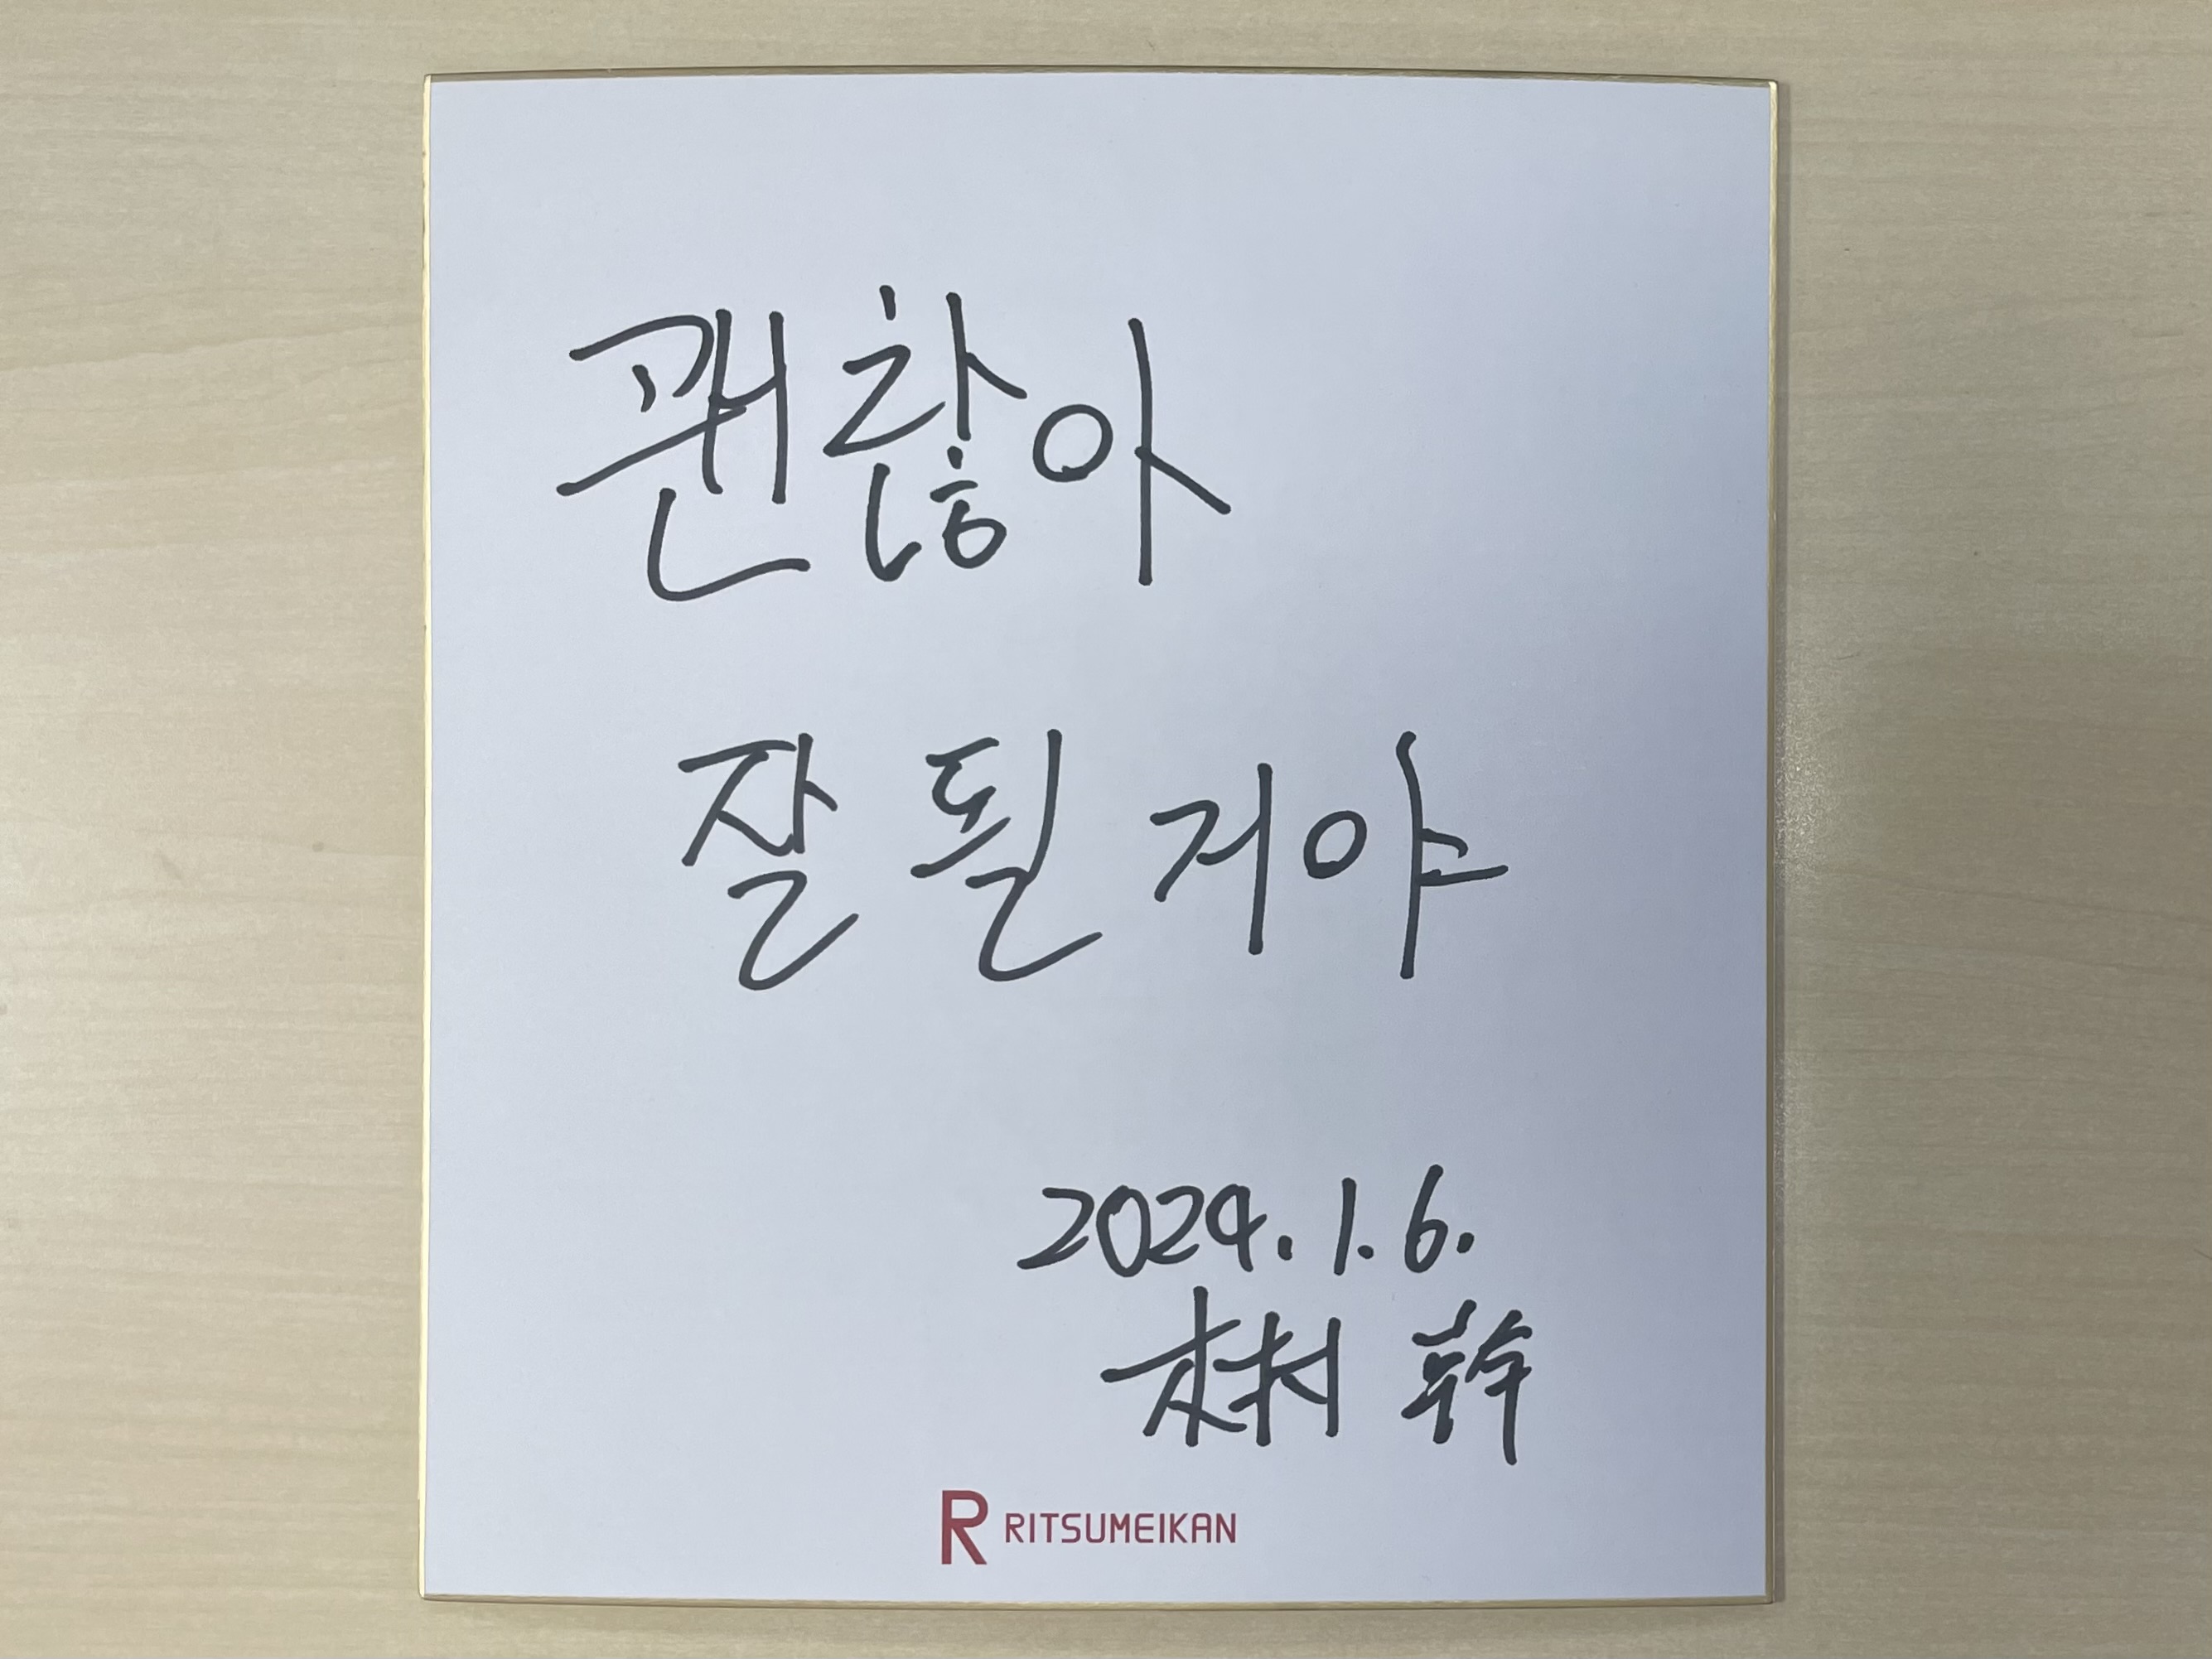 괜찮아
잘 될 거야
2024. 1. 6.
木村 幹
R RITSUMEIKAN